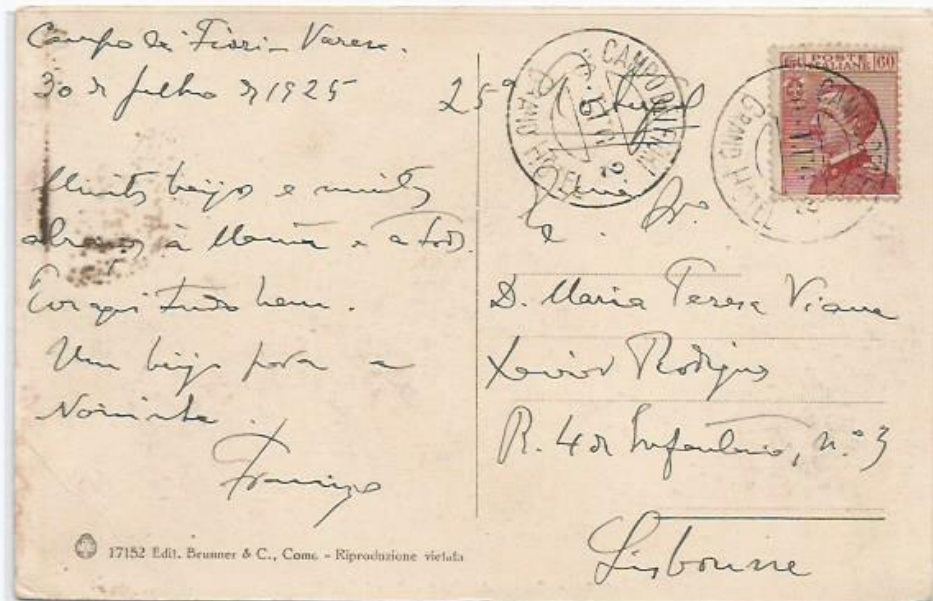 Campo dei Fiori - Varese.
30 de Julho de 1925
25º
Muitos beijos e muitos
abraços à Mamã e a todos.
Por aqui tudo bem.
Um beijo para a
17152 Edit. Brunner & C., Como - Riproduzione vietata
CAMPO DEI FIORI
GRAND HOTEL
POSTE ITALIANE
60
GRAND HOTEL
D. Maria Teresa Viana
Xavier Rodrigues
R. 4 de Infantaria, n.º 3
Lisbonne